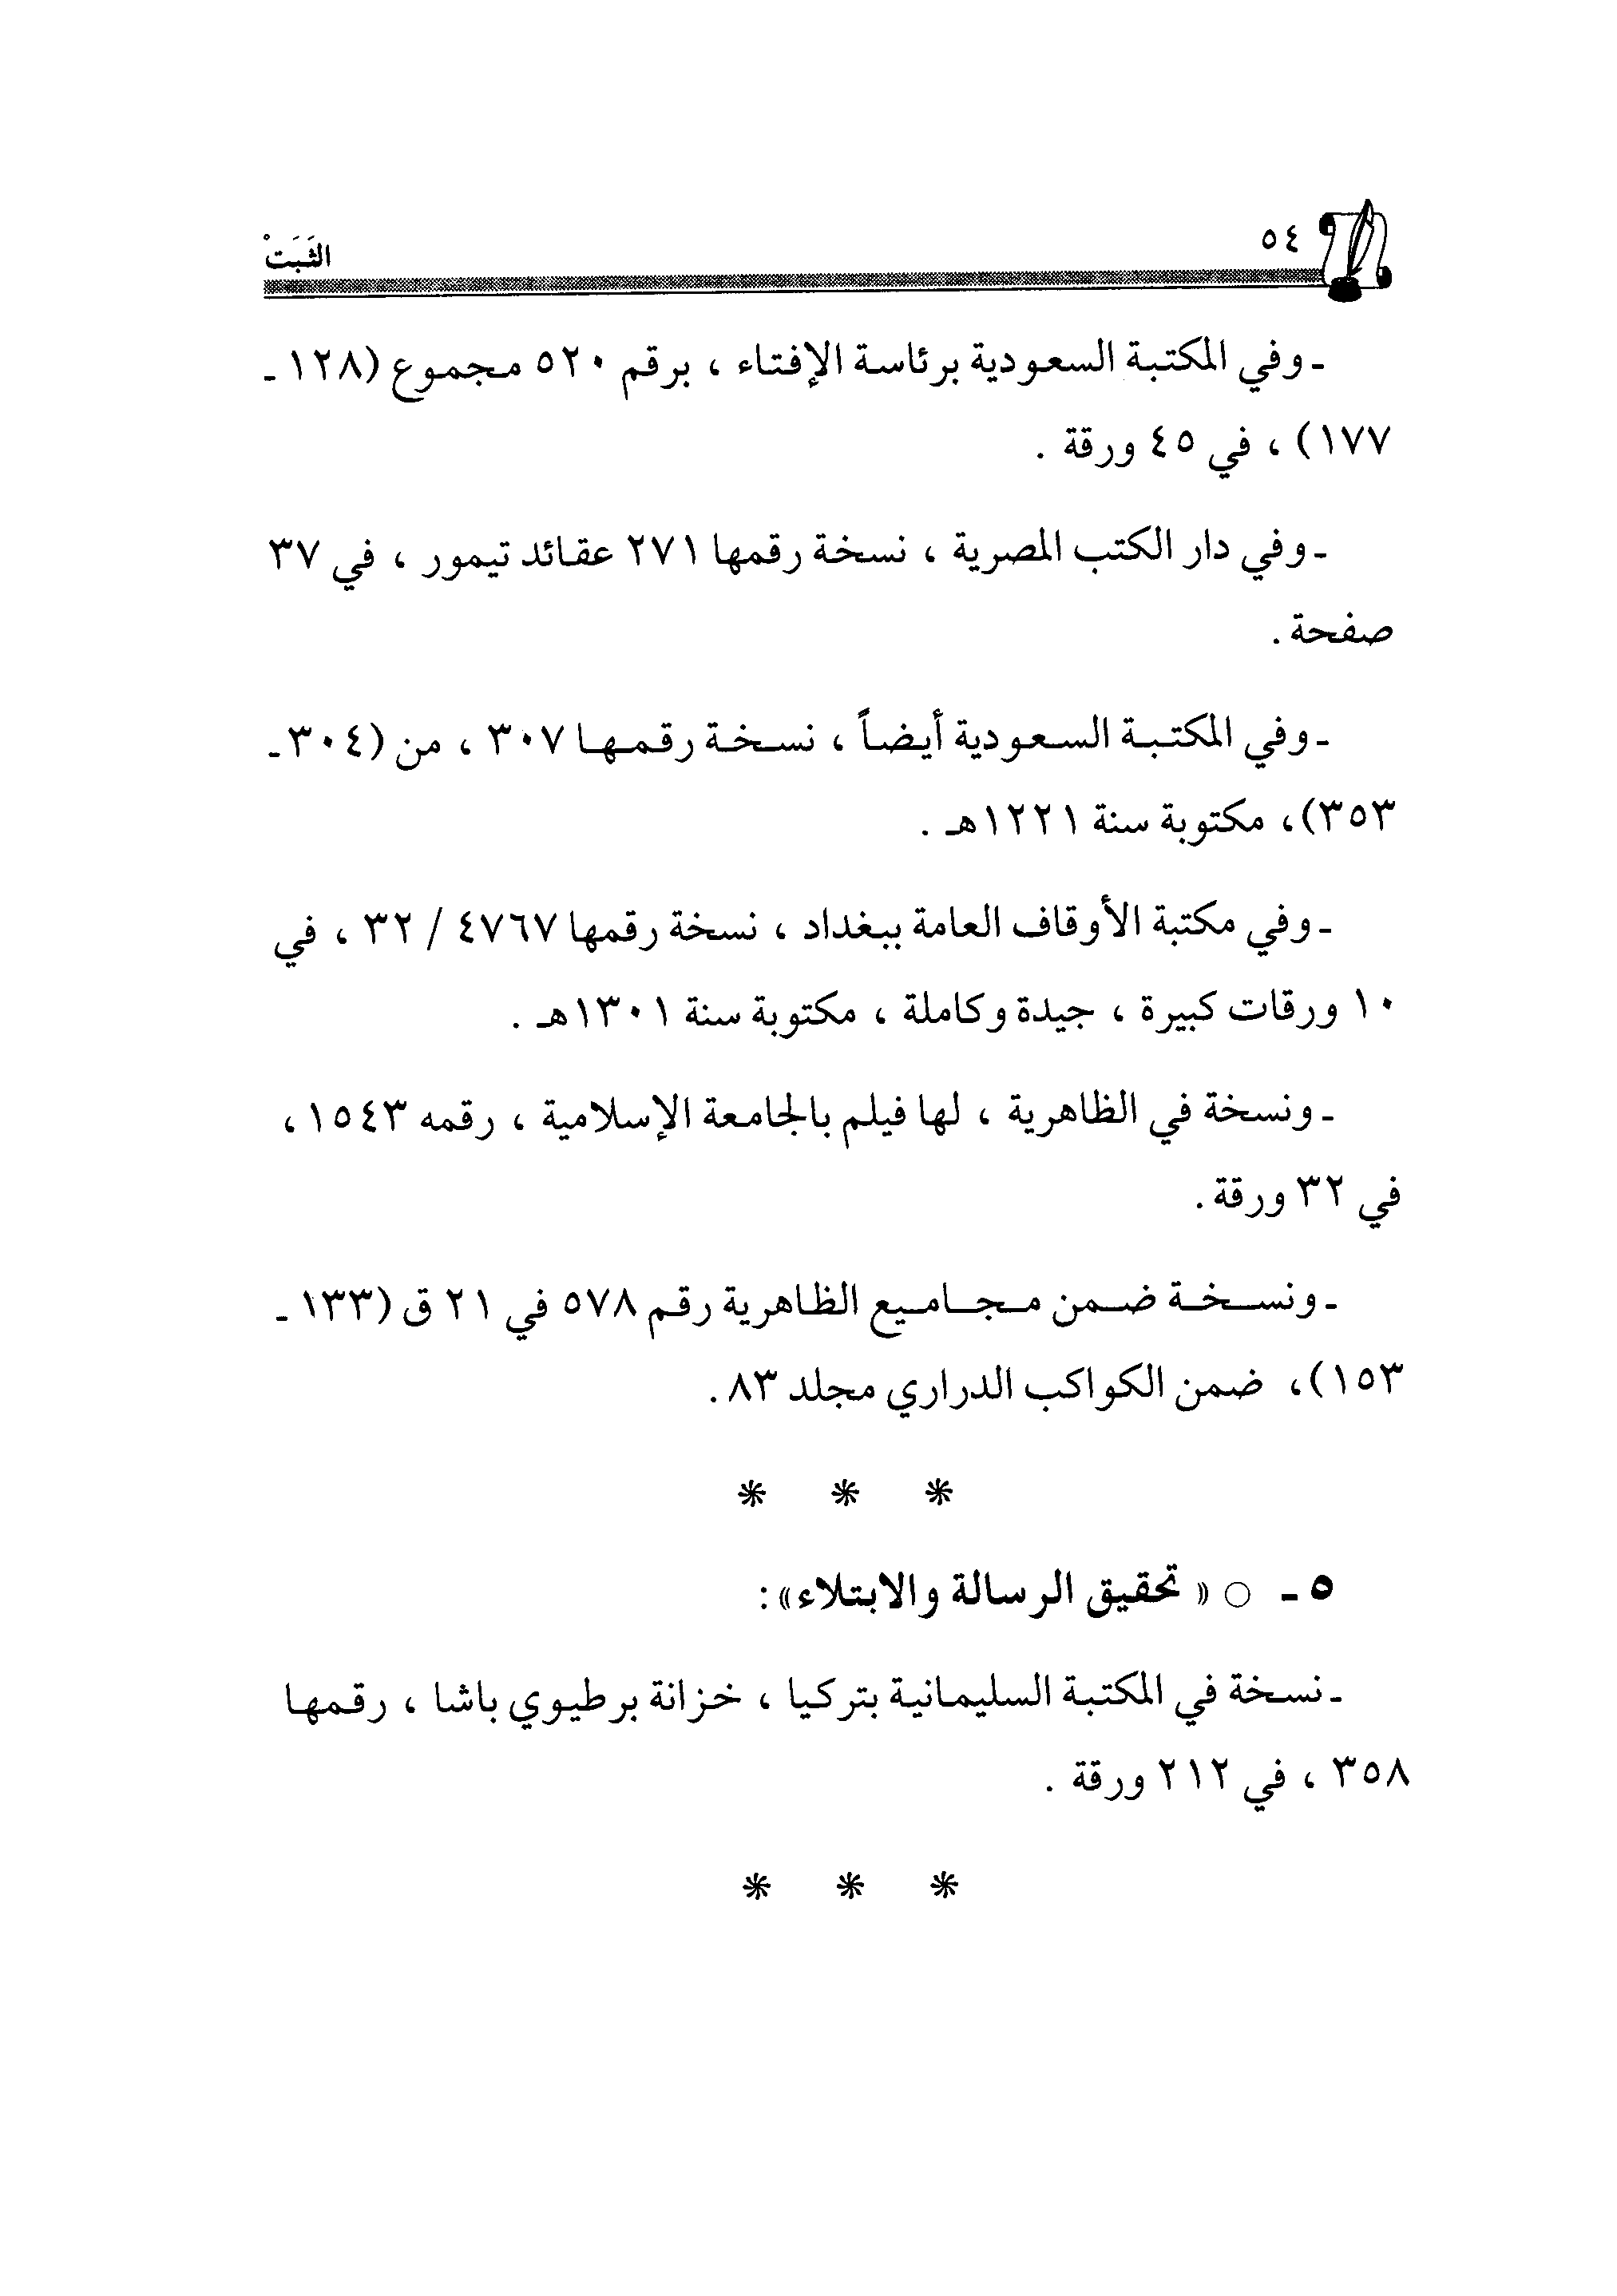 ٥٤
الثَبَتْ
ـ وفي المكتبة السعودية برئاسة الإفتاء ، برقم ٥٢٠ مجموع (١٢٨ ـ
١٧٧) ، في ٤٥ ورقة .
ـ وفي دار الكتب المصرية ، نسخة رقمها ٢٧١ عقائد تيمور ، في ٣٧
صفحة .
ـ وفي المكتبة السعودية أيضاً ، نسخة رقمها ٣٠٧ ، من (٣٠٤ ـ
٣٥٣)، مكتوبة سنة ١٢٢١هـ .
ـ وفي مكتبة الأوقاف العامة ببغداد ، نسخة رقمها ٤٧٦٧ / ٣٢ ، في
١٠ ورقات كبيرة ، جيدة وكاملة ، مكتوبة سنة ١٣٠١هـ .
ـ ونسخة في الظاهرية ، لها فيلم بالجامعة الإسلامية ، رقمه ١٥٤٣ ،
في ٣٢ ورقة .
ـ ونسخة ضمن مجاميع الظاهرية رقم ٥٧٨ في ٢١ ق (١٣٣ ـ
١٥٣)، ضمن الكواكب الدراري مجلد ٨٣ .
* * *
٥ ـ ○ « تحقيق الرسالة والابتلاء» :
ـ نسخة في المكتبة السليمانية بتركيا ، خزانة برطيوي باشا ، رقمها
٣٥٨ ، في ٢١٢ ورقة .
* * *